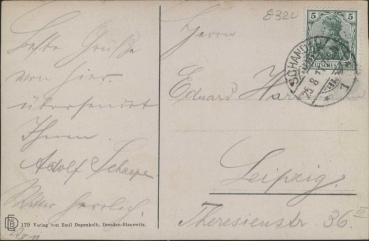 Beste Grüße
von hier
übersendet
Ihnen
Adolf Scharpe
Wetter herrlich.
8320
Herrn
Eduard
Leipzig.
Theresienstr 36 II
5 5
SCHANDAU
25.8.1
1
179 Verlag von Emil Degenkolb, Dresden-Blasewitz.